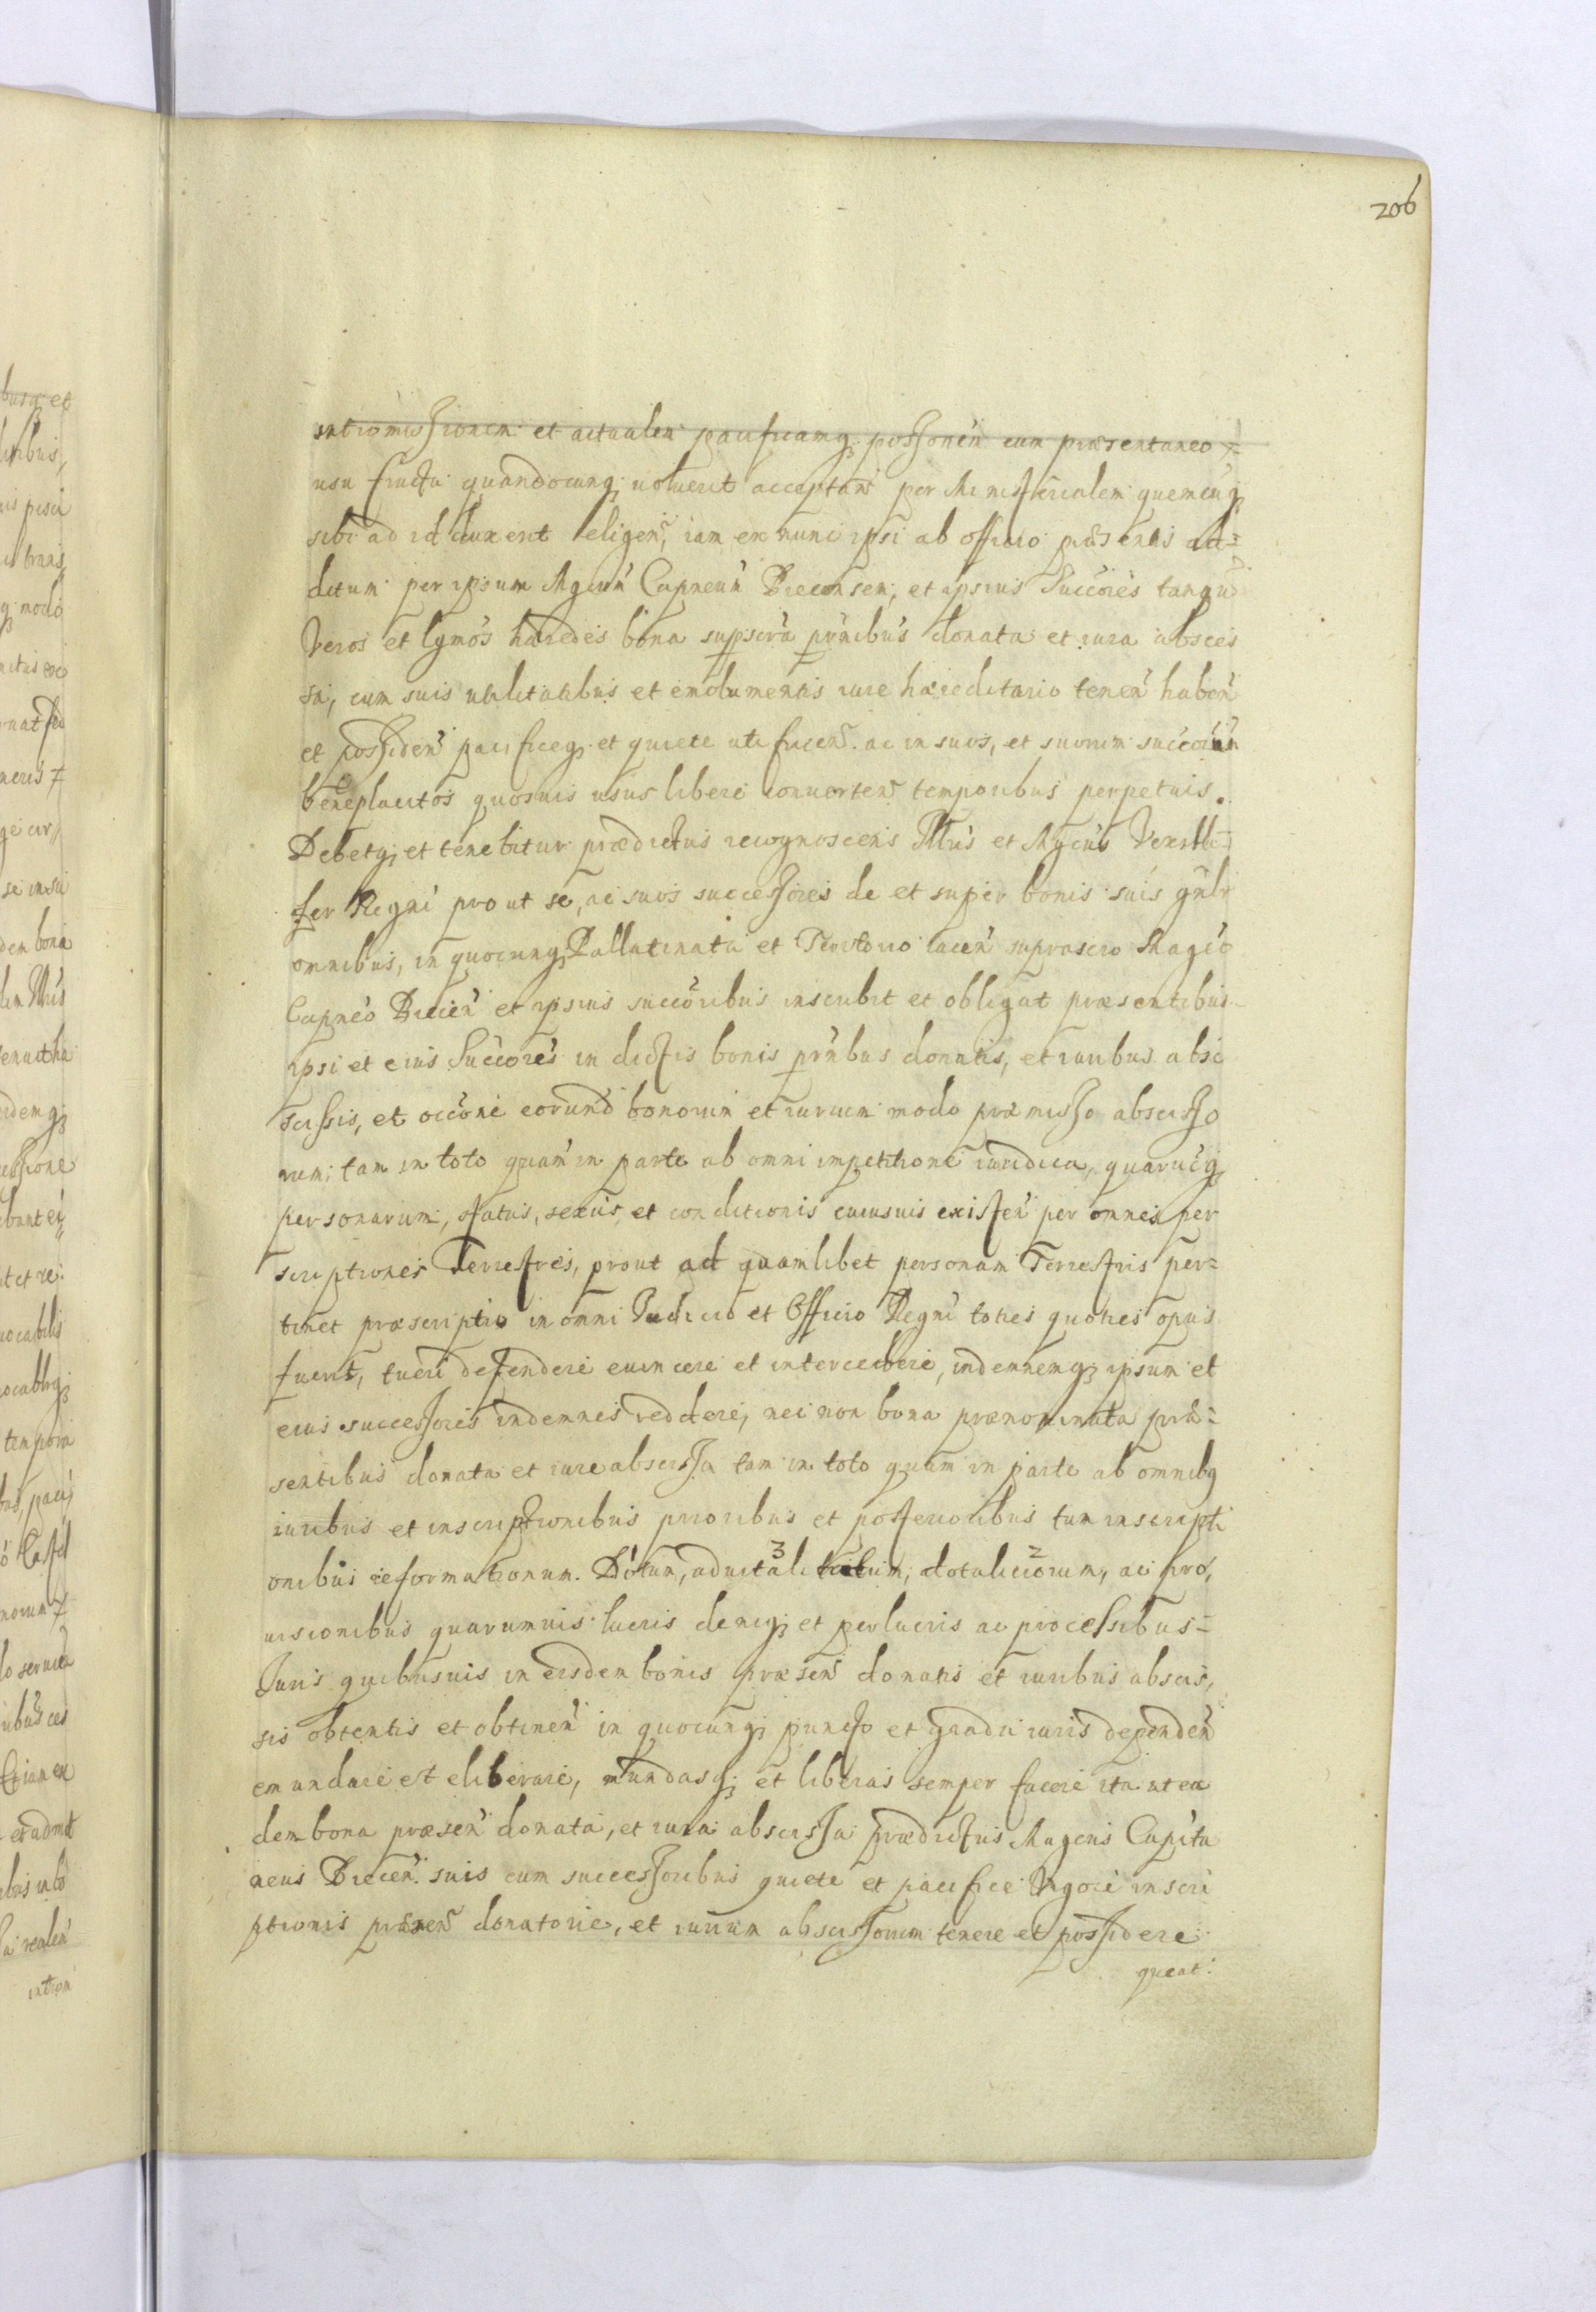 206
intromissionem et actualem pacificamq; possonem cum praesentaneo
usu fructu quandocunq; voluerit acceptan per Ministerialem quemcuq;
sibi ad id duxerit eligen, iam ex nunc ipsi ab officio praesentis ad=
ditum per ipsum Mgcum Capneum Brecensem, et ipsius Succores tanqu
Veros et lgmos haeredes bona suprscra pntibus donata et iura absces
sa, cum suis utilitatibus et emolumentis iure haereditario tenen haben
et possiden pacificeq; et quiete uti fruen. ac in suos, et suorum succorum
beneplacitos quosuis usus libere conuerten temporibus perpetuis.
Debetq; et tenebitur praedictus recognoscens Illus et Mgcus Vexilli=
fer Regni prout se, ac suos successores de et super bonis suis gnlr
omnibus, in quocunq; Pallatinatu et Territorio iacen suprascro Magco
Capneo Brecen et ipsius succoribus inscribit et obligat praesentibus
ipsi et eius Succores in dictis bonis pntibus donatis, et iuribus absc
scissis, et occone eorund bonorum et iurium modo praemisso abscisso
rum, tam in toto quam in parte ab omni impetitione iuridica, quarucq;
personarum, status, sexus, et conditionis cuiusuis existen per omnes per
scriptiones Terrestres, prout ad quamlibet personam Terrestris per=
tinet praescriptio in omni Iudicio et Officio Regni toties quoties opus
fuerit, tueri defendere euincere et intercedere, indemnemq; ipsum et
eius successores indemnes reddere, nec non bona praenominata prae=
sentibus donata et iure abscissa tam in toto quam in parte ab omnibq
iuribus et inscriptionibus prioribus et posterioribus tum inscripti
onibus reformationum. Dotum, aduitalitatum, 3 dotaliciorum, 2 ac pro,
uisionibus quarumuis lucris deniq; et perlucris ac processibus=
Iuris quibusuis in eisdem bonis praesen donatis et iuribus abscis,
sis obtentis et obtinen in quocunq; puncto et gradu iuris dependen
emundare et eliberare, mundasq; et liberas semper facere ita ut ea
dem bona praesen donata, et iura abscissa praedictus Magcus Capita
neus Brecen. suis cum successoribus quiete et pacifice Vigore inscri
ptionis praesen donatorie, et iurium abscissorum tenere et possidere
queat.